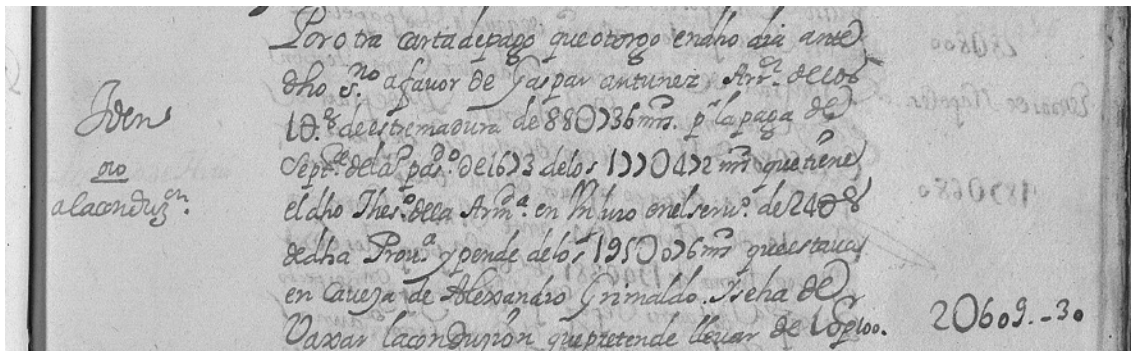 Por otra carta de pago que otorgo en dho dia ante
dho S.no a favor de Gaspar antunez Arr.or de los
Iden
10.s de estremadura de 88U736 mrs. p.a la paga de
no
Sept.re de la p.a pas.o de 1673 de los 177U472 mrs que tiene
a la conduz.n.
el dho Thes.o de la Arm.a en un juro en el serui.o de 24U s
de dha Prou.a y pende de los 195U076 mrs que estauan
en caueza de Alexandro Grimaldo. Se ha de
Vaxar la conduzion que pretende lleuar de 10 p 100.
2U609.-30